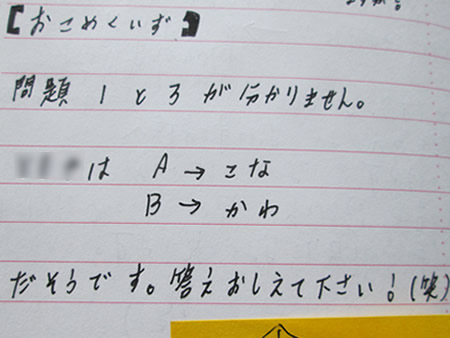 【おこめくいず】
問題1と3が分かりません。
は A→こな
B→かわ
だそうです。答えおしえて下さい!(笑)